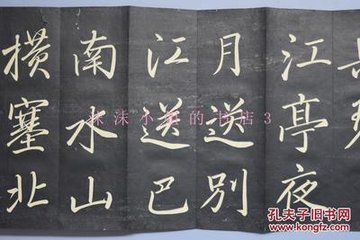 江亭夜
月送别
江送巴
南水山
横塞北
沫沫小的店3
孔夫子旧书网
www.kongfz.com